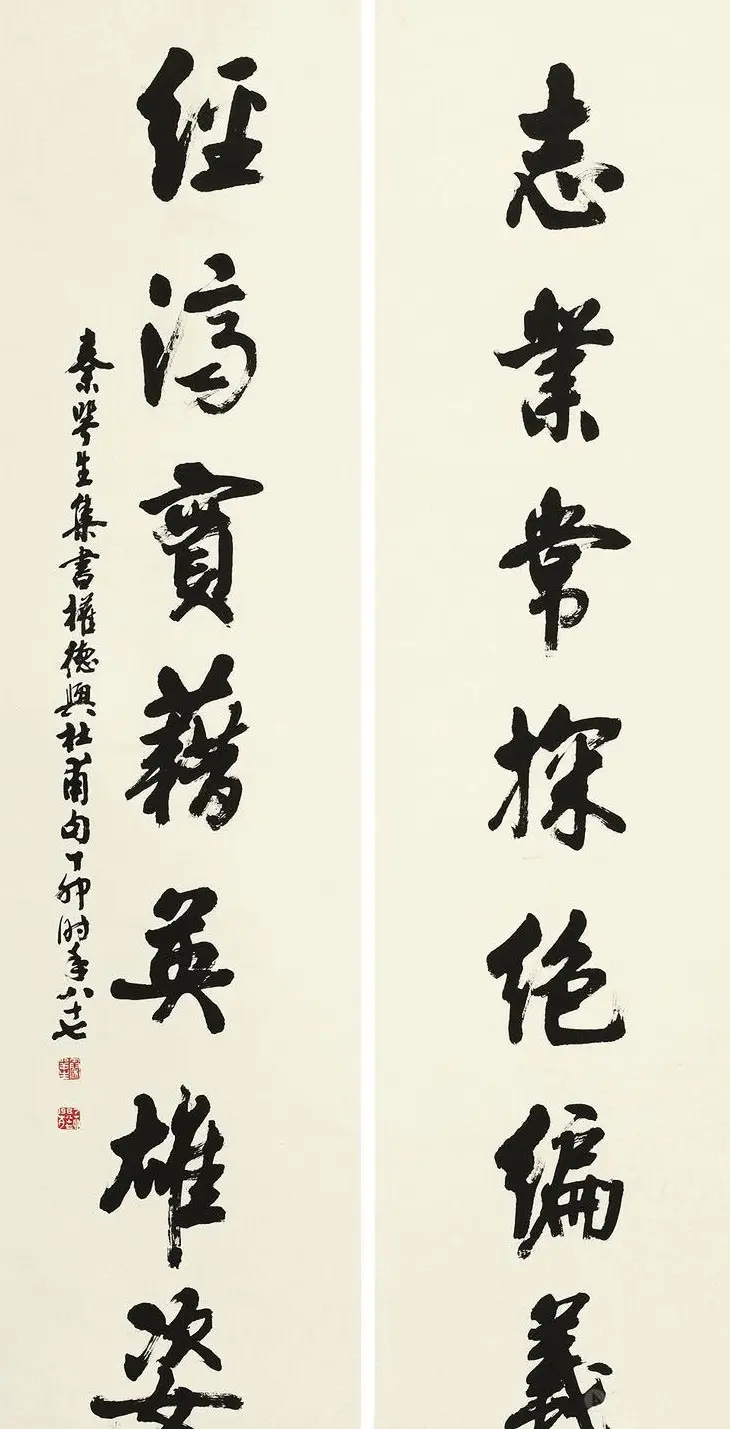 志業常探絕編義
經濟實藉英雄姿
秦咢生集書權德輿杜甫句丁卯時年八十七